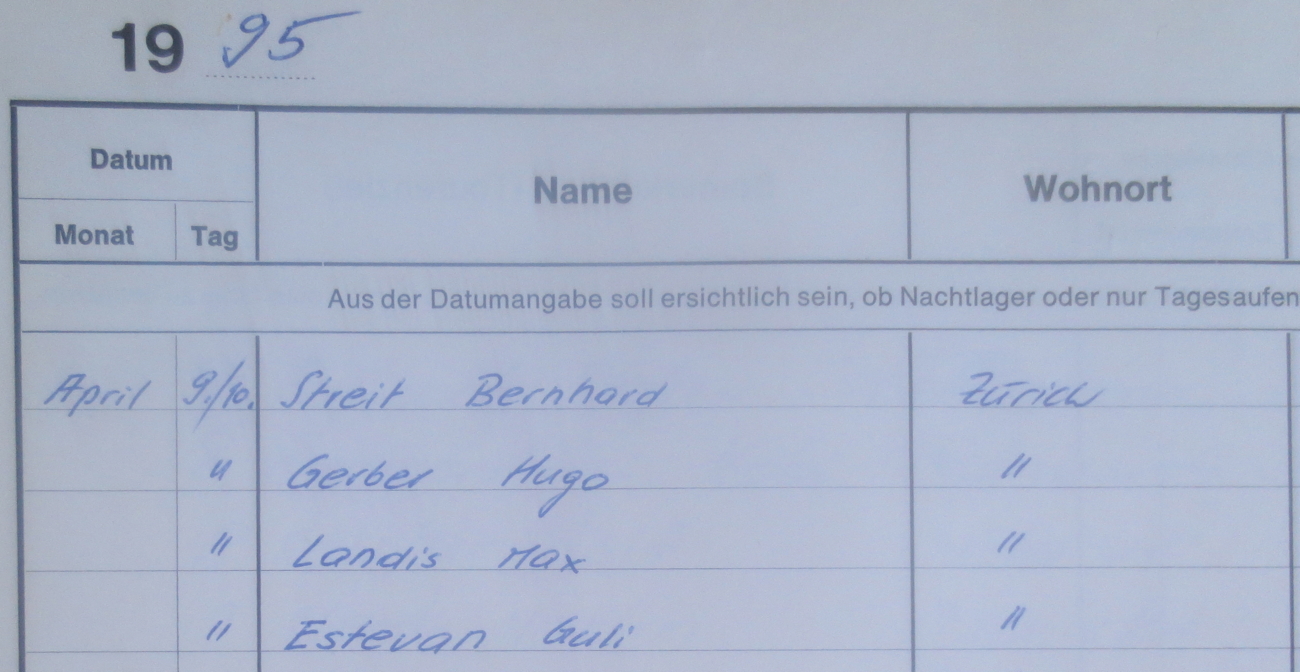 19 95
Datum
Name
Wohnort
Monat Tag
Aus der Datumangabe soll ersichtlich sein, ob Nachtlager oder nur Tagesaufen
April 9./10. Streit Bernhard Zürich
" Gerber Hugo "
" Landis Max "
" Estevan Guli "